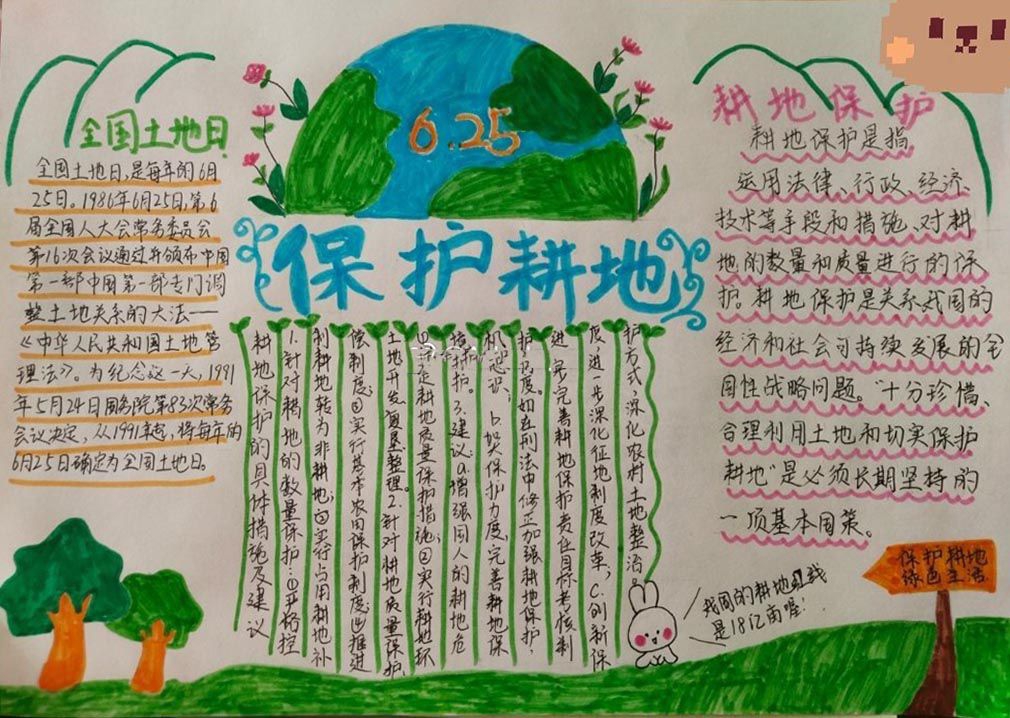 6.25
保护耕地
全国土地日
全国土地日,是每年的6月
25日。1986年6月25日,第6
届全国人大会常务委员会
第16次会议通过并颁布中国
第一部中国第一部专门调
整土地关系的大法——
《中华人民共和国土地管
理法》。为纪念这一天,1991
年5月24日国务院第83次常务
会议决定,从1991年起,将每年的
6月25日确定为全国土地日。
耕地保护的具体措施及建议
1.针对耕地的数量保护:①严格控
制耕地转为非耕地;②实行占用耕地补
偿制度;③实行基本农田保护制度;④推进
土地开发复垦整理。2.针对耕地质量保护:
定耕地质量保护措施;②实行耕地环
保护。3.建议:a.增强国人的耕地危
机意识;b.加大保护力度,完善耕地保
护制度。如在刑法中修正加强耕地保护,
进一步完善耕地保护责任目标考核制
度,进一步深化征地制度改革,C.创新保
护方式,深化农村土地整治。
耕地保护
耕地保护是指
运用法律、行政、经济、
技术等手段和措施、对耕
地的数量和质量进行的保
护。耕地保护是关系我国的
经济和社会可持续发展的全
国性战略问题。"十分珍惜、
合理利用土地和切实保护
耕地"是必须长期坚持的
一项基本国策。
我国的耕地红线
是18亿亩喔!
保护耕地
绿色生活